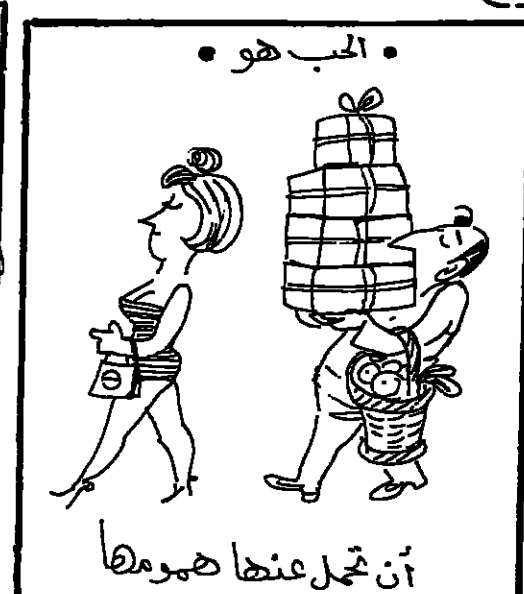 • الحب هو •
أن تحمل عنها همومها